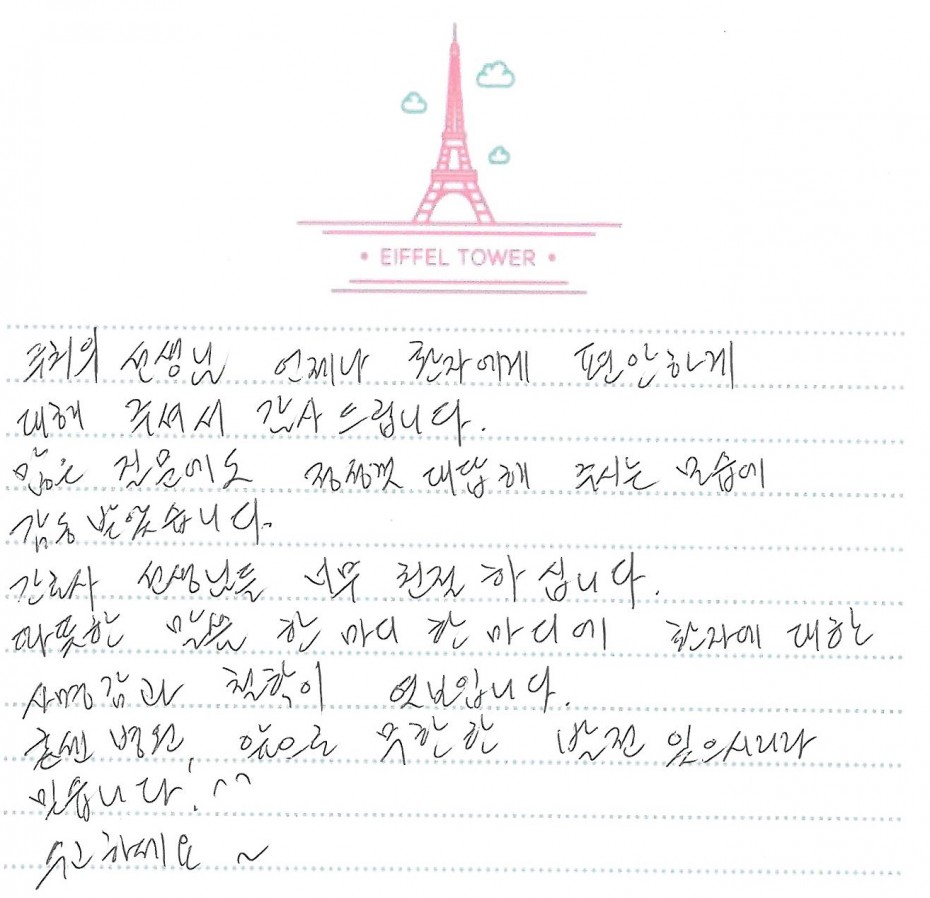 • EIFFEL TOWER •
주치의 선생님 언제나 환자에게 편안하게
대해 주셔서 감사드립니다.
많은 질문에도 정성껏 대답해 주시는 모습에
감동 받았습니다.
간호사 선생님들 너무 친절하십니다.
따뜻한 말씀 한마디 한마디에 환자에 대한
사명감과 철학이 엿보입니다.
병원, 앞으로 무한한 발전 있으시리라
믿습니다! ^^
수고하세요 ~